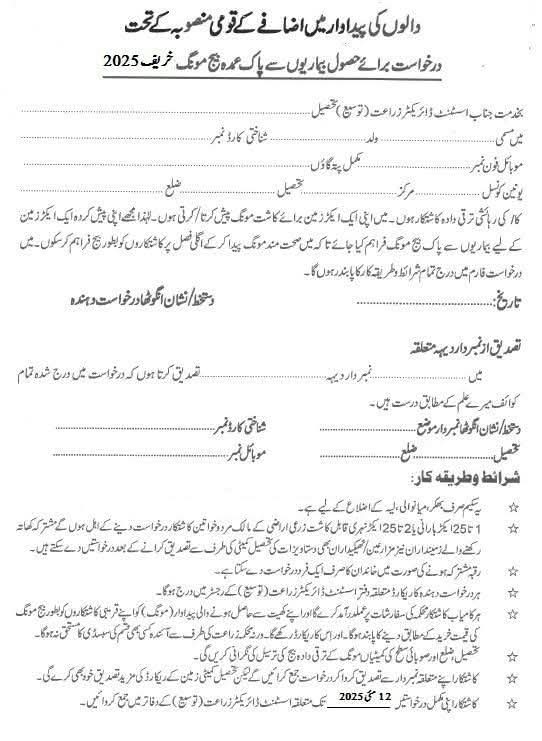 دالوں کی پیداوار میں اضافے کے قومی منصوبہ کے تحت
درخواست برائے حصول بیماریوں سے پاک عمدہ بیج مونگ خریف 2025
بخدمت جناب اسسٹنٹ ڈائریکٹر زراعت (توسیع) تحصیل
میں مسمی ولد شناختی کارڈ نمبر
موبائل فون نمبر مکمل پتہ گاؤں
یونین کونسل مرکز تحصیل ضلع
کا/ کی رہائشی ترقی دادہ کاشتکار ہوں۔ میں اپنی ایک ایکڑ زمین برائے کاشت مونگ پیش کرتا/کرتی ہوں۔ لہٰذا مجھے اپنی پیش کردہ ایک ایکڑ زمین
کے لیے بیماریوں سے پاک بیج مونگ فراہم کیا جائے تاکہ میں صحت مند مونگ پیدا کر کے اگلی فصل پر کاشتکاروں کو بطور بیج فراہم کر سکوں۔ میں
درخواست فارم میں درج تمام شرائط و طریقہ کار کا پابند رہوں گا۔
تاریخ: دستخط/ نشان انگوٹھا درخواست دہندہ
تصدیق از نمبردار دیہہ متعلقہ
میں نمبردار دیہہ تصدیق کرتا ہوں کہ درخواست میں درج شدہ تمام
کوائف میرے علم کے مطابق درست ہیں۔
دستخط/ نشان انگوٹھا نمبردار موضع شناختی کارڈ نمبر
تحصیل ضلع موبائل نمبر
شرائط وطریقہ کار:
☆ یہ سکیم صرف بھکر، میانوالی، لیہ کے اضلاع کے لیے ہے۔
☆ 1 تا 25 ایکڑ بارانی یا 2 تا 25 ایکڑ نہری قابل کاشت زرعی اراضی کے مالک مرد و خواتین کاشتکار درخواست دینے کے اہل ہوں گے مشترکہ کھاتہ
رکھنے والے زمینداران نیز مزارعین/ ٹھیکیداران بھی دستاویزات کی تحصیل کمیٹی کی طرف سے تصدیق کرانے کے بعد درخواستیں دے سکتے ہیں۔
☆ رقبہ مشترکہ ہونے کی صورت میں خاندان کا صرف ایک فرد درخواست دے سکتا ہے۔
☆ ہر درخواست دہندہ کا ریکارڈ متعلقہ دفتر اسسٹنٹ ڈائریکٹر زراعت (توسیع) کے رجسٹر میں درج ہوگا۔
☆ ہر کامیاب کاشتکار محکمہ کی سفارشات پر عملدرآمد کرے گا اور اپنے کھیت سے حاصل ہونے والی پیداوار (مونگ) کو اپنے قریبی کاشتکاروں کو بطور بیج مونگ
کی قیمت خرید کے مطابق دینے کا پابند ہوگا۔ اور اس کا ریکارڈ رکھے گا۔ ورنہ محکمہ زراعت کی طرف سے آئندہ کسی بھی قسم کی سبسڈی کا مستحق نہ ہوگا۔
☆ تحصیل، ضلع اور صوبائی سطح کی کمیٹیاں مونگ کے ترقی دادہ بیج کی ترسیل کی نگرانی کریں گی۔
☆ کاشتکار اپنے متعلقہ نمبردار سے تصدیق کروا کر درخواست جمع کرائیں گے لیکن تحصیل کمیٹی زمین کے ریکارڈ کی مزید تصدیق خود بھی کرے گی۔
☆ کاشتکار اپنی مکمل درخواستیں 12 مئی 2025 تک متعلقہ اسسٹنٹ ڈائریکٹر زراعت (توسیع) کے دفاتر میں جمع کروائیں۔